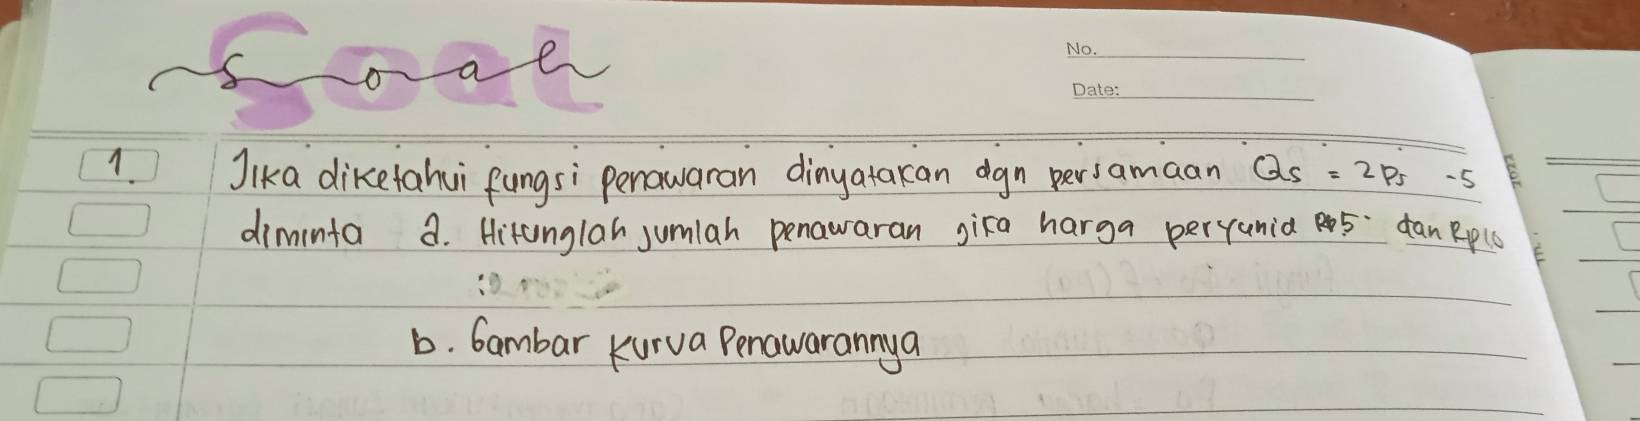 Soal
No.
Date:
1. Jika diketahui fungsi penawaran dinyatakan dgn persamaan Qs = 2Ps -5
diminta a. Hitunglah jumlah penawaran jika harga peryunid Rp5 dan Rp10
b. Gambar kurva Penawarannya